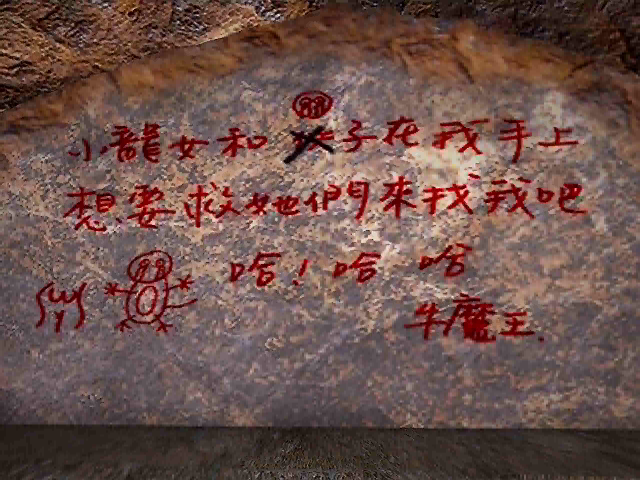 小龍女和子在我手上
想要救她們來找我吧
哈！哈 哈
牛魔王.